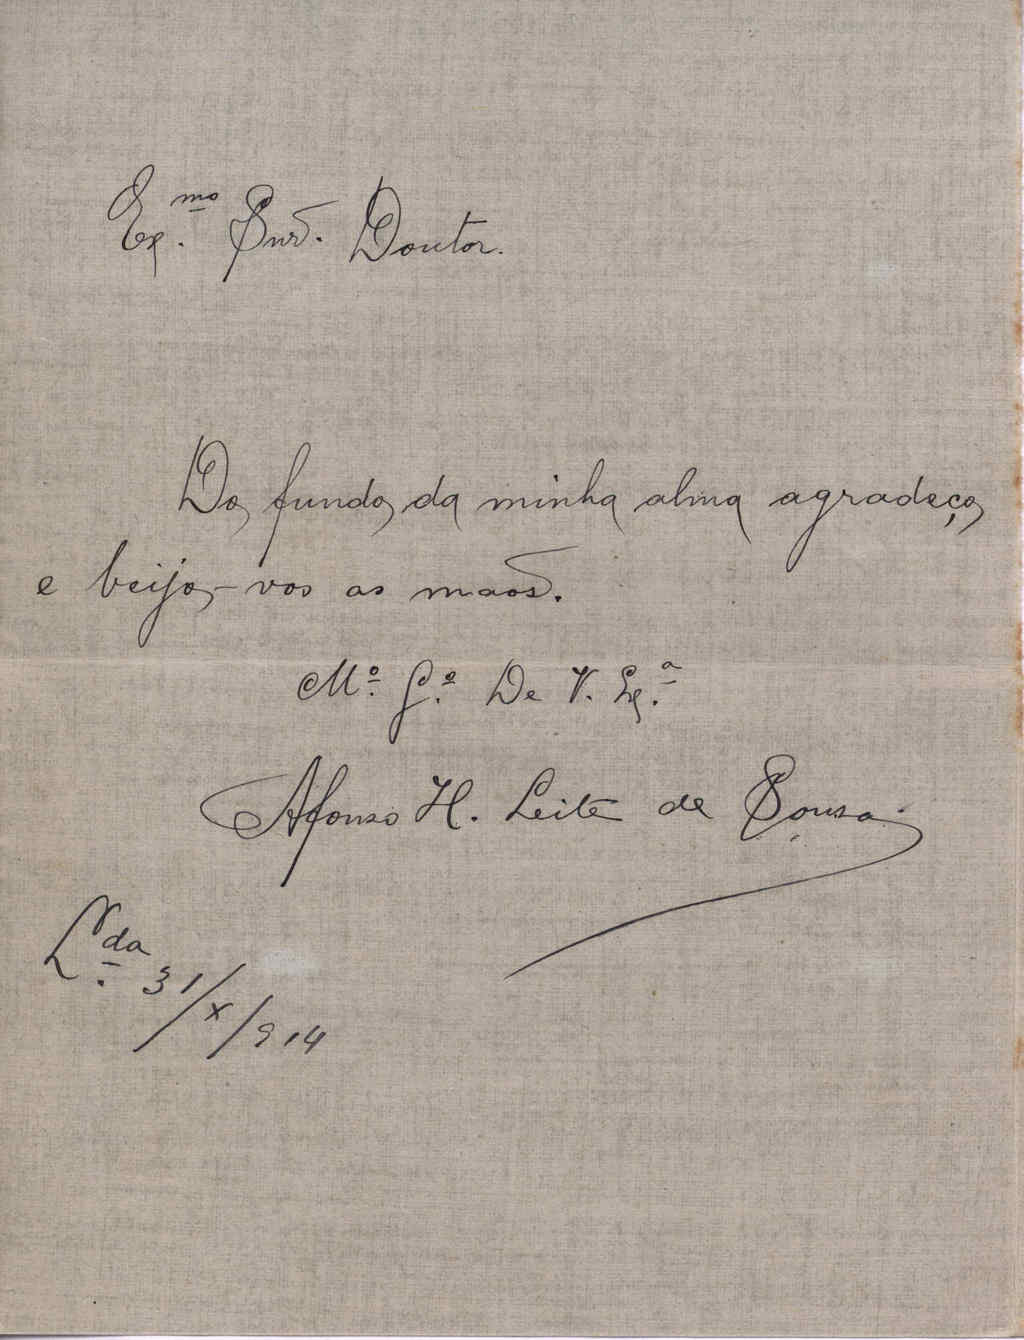 Ex.mo Snr. Doutor.
Do fundo da minha alma agradeço
e beijo-vos as mãos.
M.º G.º De V. Ex.ª
Afonso H. Leite de Sousa
L.da 31/X/914